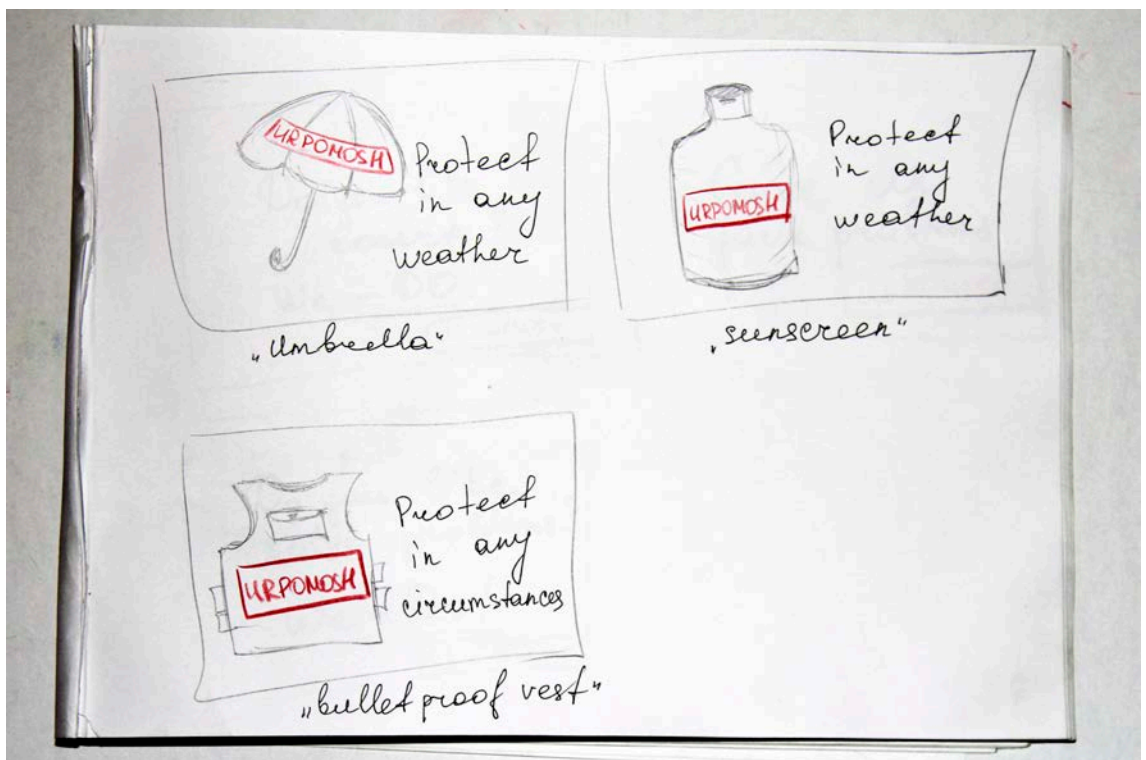 URPOMOSH
Protect
in any
weather
„Umbrella"
URPOMOSH
Protect
in any
weather
„sunscreen"
URPOMOSH
Protect
in any
circumstances
„bullet proof vest"